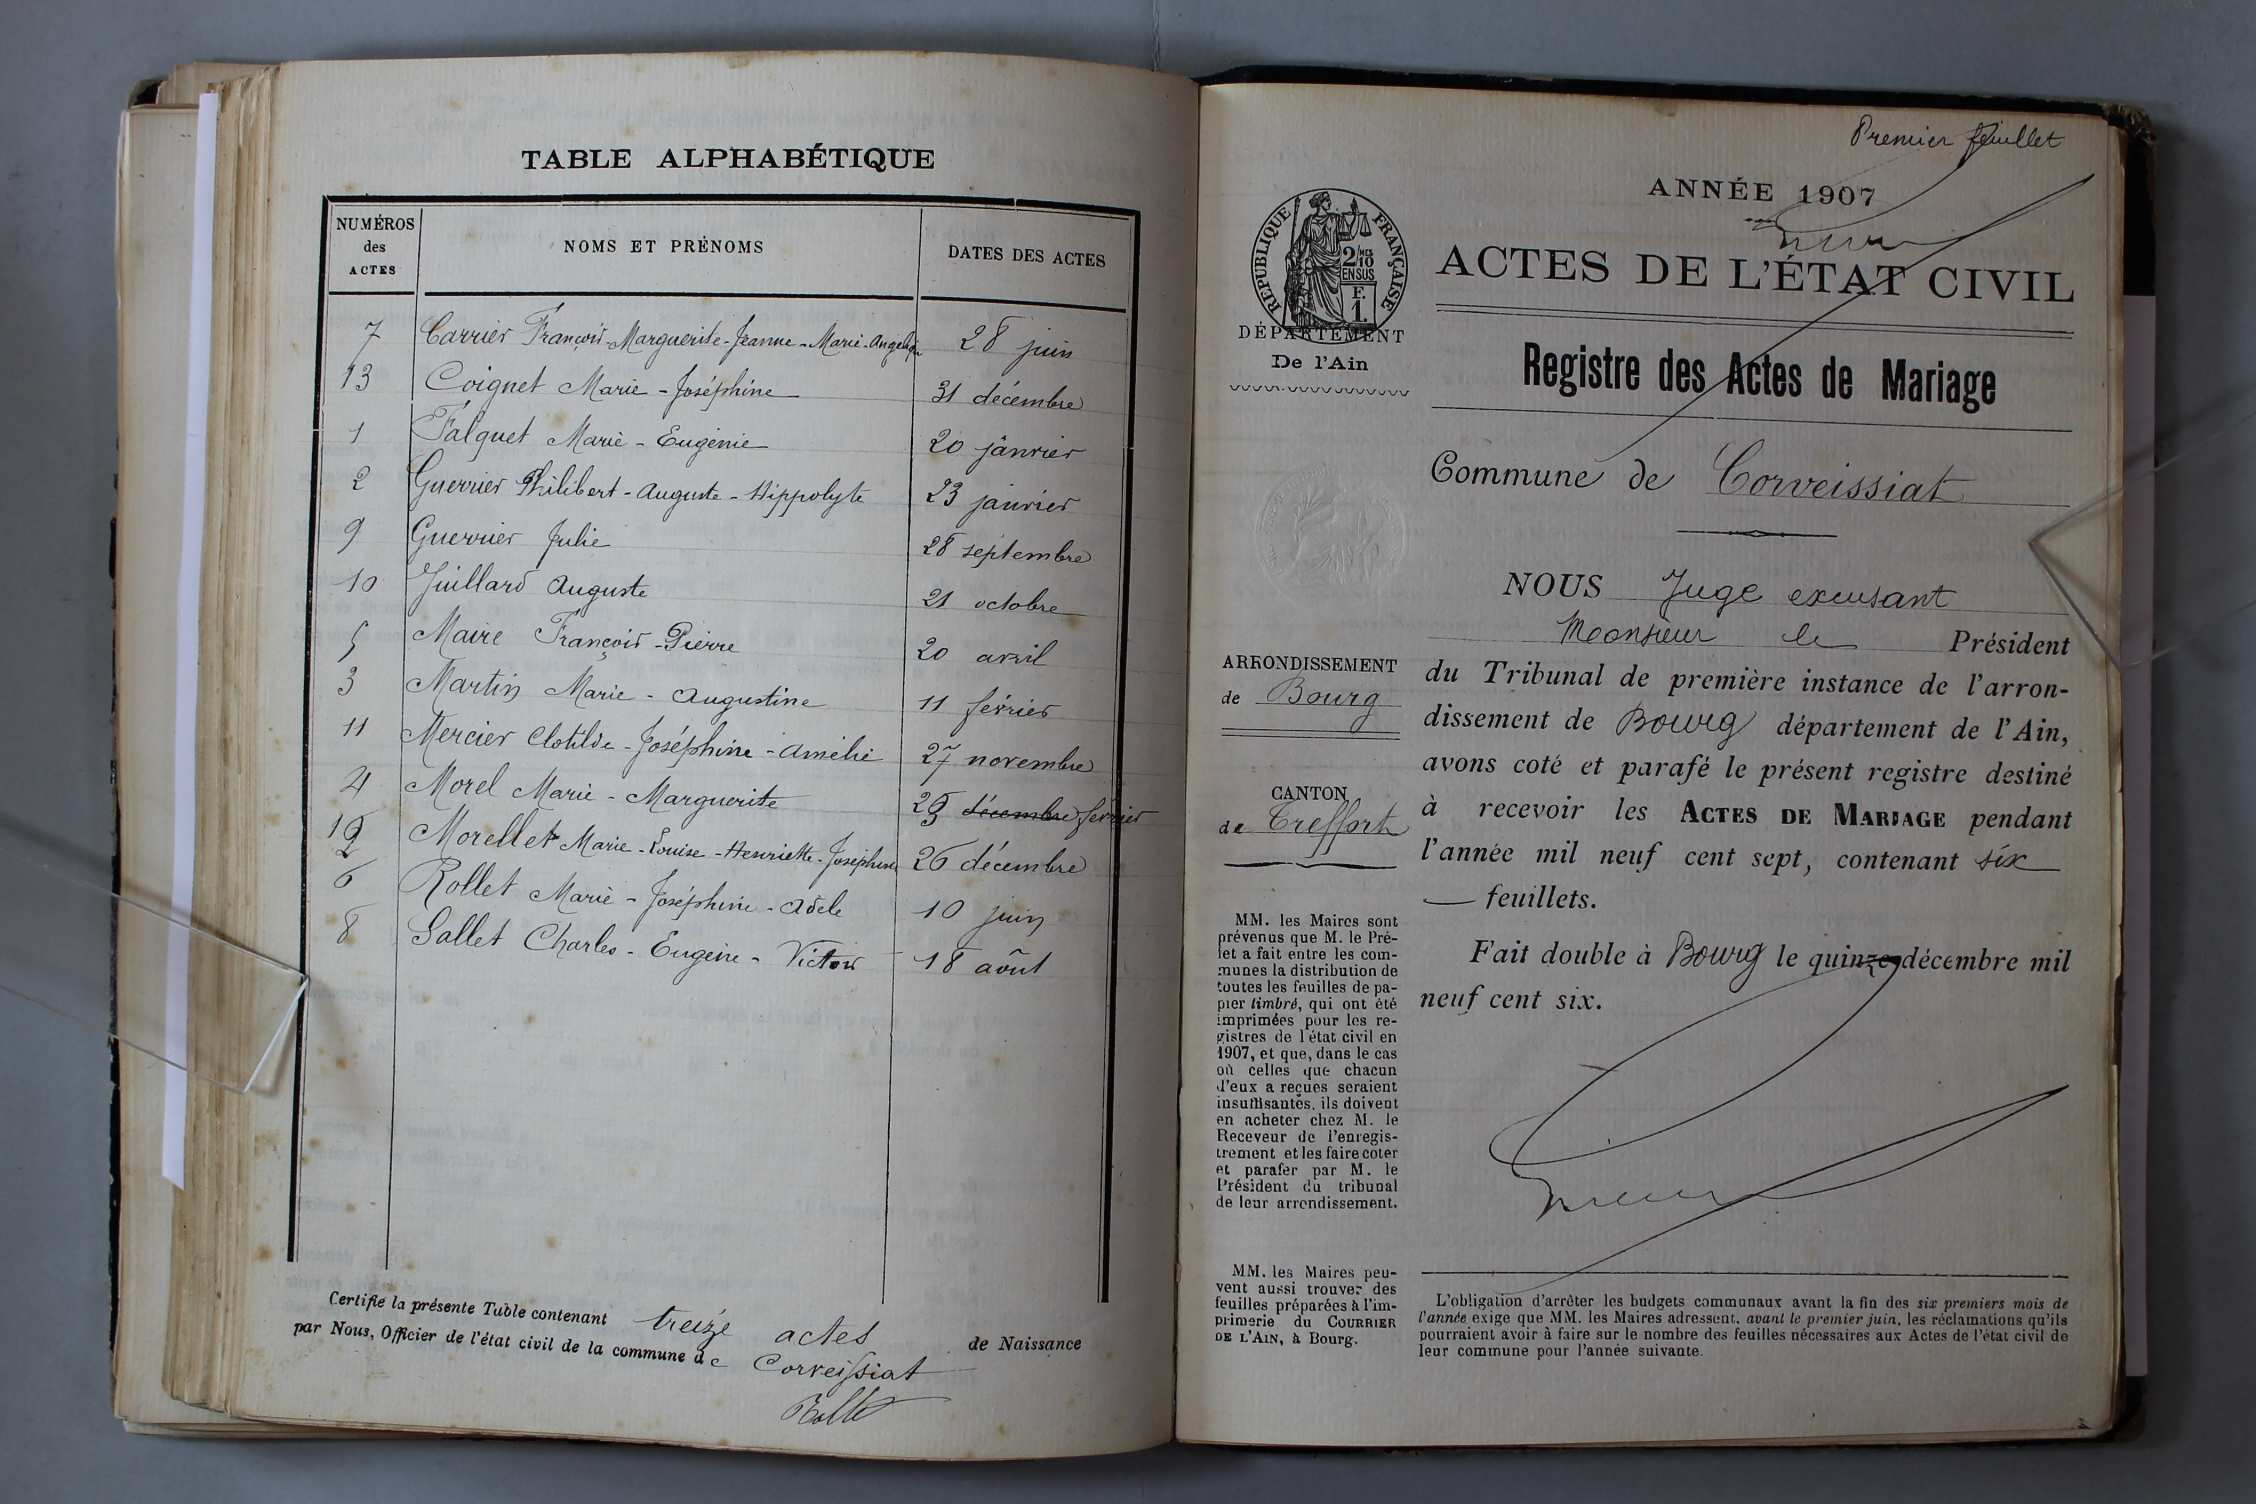 TABLE ALPHABÉTIQUE
NUMÉROS des ACTES | NOMS ET PRÉNOMS | DATES DES ACTES
7 Carrier François-Marguerite-Jeanne-Marie- 28 juin
13 Coignet Marie-Joséphine 31 décembre
1 Falquet Marie-Eugénie 20 janvier
2 Guerrier Philibert-Auguste-Hippolyte 23 janvier
9 Guerrier Julie 28 septembre
10 Juillard Auguste 21 octobre
5 Maire François-Pierre 20 avril
3 Martin Marie-Augustine 11 février
11 Mercier Clotilde-Joséphine-Amélie 27 novembre
4 Morel Marie-Marguerite décembre février
12 Morellet Marie-Louise-Henriette-Joséphine 26 décembre
6 Rollet Marie-Joséphine-Adèle 10 juin
8 Sallet Charles-Eugène-Victor 18 août
Certifié la présente Table contenant treize actes de Naissance
par Nous, Officier de l'état civil de la commune de Corveissiat
Premier feuillet
ANNÉE 1907
RÉPUBLIQUE FRANÇAISE
2/MES 10 EN SUS
F. 1.
ACTES DE L'ÉTAT CIVIL
DÉPARTEMENT
De l'Ain
Registre des Actes de Mariage
Commune de Corveissiat
NOUS Juge excusant
Monsieur le Président
du Tribunal de première instance de l'arron-
dissement de Bourg département de l'Ain,
avons coté et parafé le présent registre destiné
à recevoir les ACTES DE MARIAGE pendant
l'année mil neuf cent sept, contenant six
— feuillets.
Fait double à Bourg le quinze décembre mil
neuf cent six.
ARRONDISSEMENT
de Bourg
CANTON
de Treffort
MM. les Maires sont
prévenus que M. le Pré-
fet a fait entre les com-
munes la distribution de
toutes les feuilles de pa-
pier timbré, qui ont été
imprimées pour les re-
gistres de l'état civil en
1907, et que, dans le cas
où celles que chacun
d'eux a reçues seraient
insuffisantes, ils doivent
en acheter chez M. le
Receveur de l'enregis-
trement et les faire coter
et parafer par M. le
Président du tribunal
de leur arrondissement.
MM. les Maires peu-
vent aussi trouver des
feuilles préparées à l'im-
primerie du COURRIER
DE L'AIN, à Bourg.
L'obligation d'arrêter les budgets communaux avant la fin des six premiers mois de
l'année exige que MM. les Maires adressent, avant le premier juin, les réclamations qu'ils
pourraient avoir à faire sur le nombre des feuilles nécessaires aux Actes de l'état civil de
leur commune pour l'année suivante.